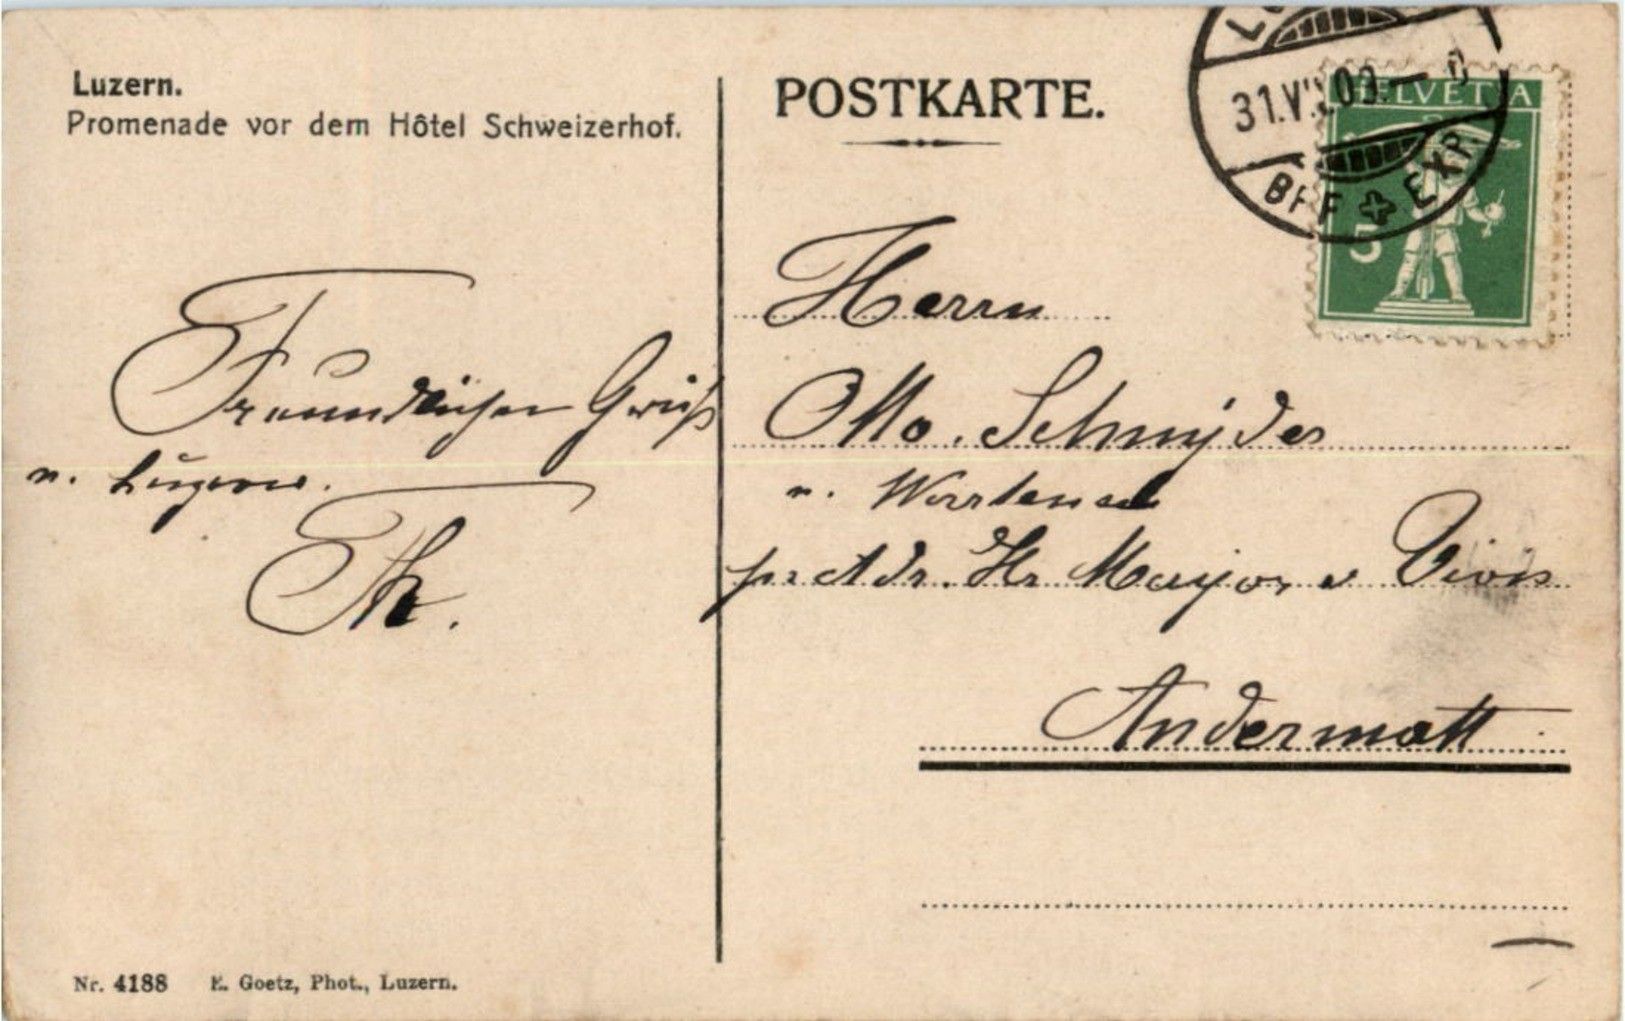 Luzern.
Promenade vor dem Hôtel Schweizerhof.
POSTKARTE.
31.VII.09.
HELVETIA
BRF EXP.
5
Freundlichen Gruß
v. Luzern.
Th.
Herrn
Otto. Schnyder
v. Wartensee
pr Adr. Hr Major v Vivis
Andermatt
Nr. 4188 E. Goetz, Phot., Luzern.